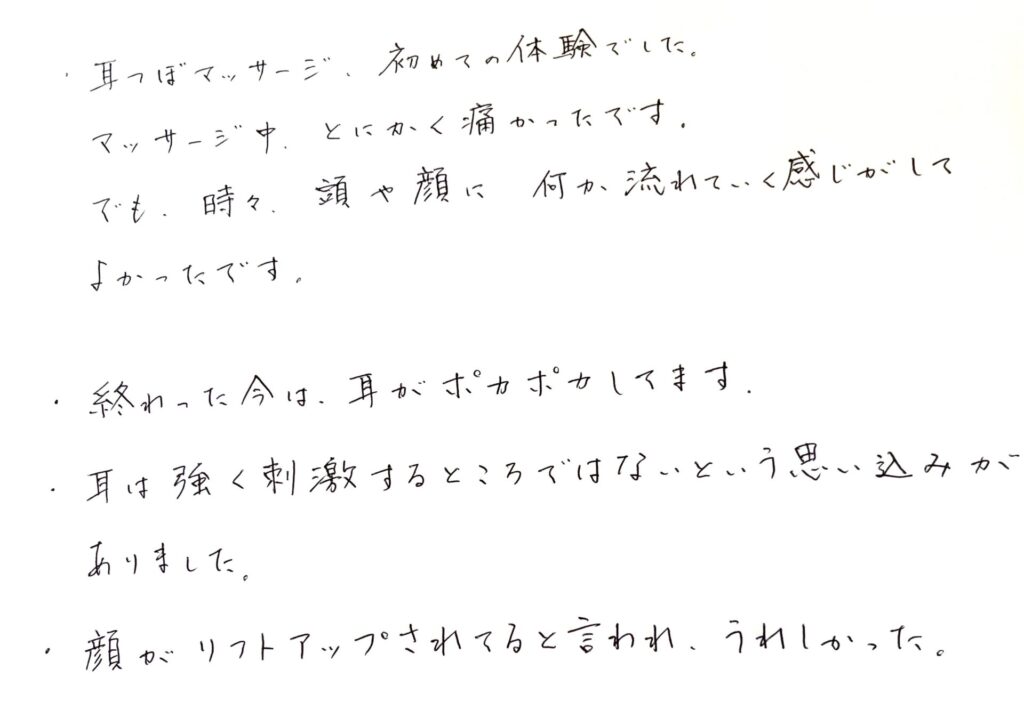 ・耳つぼマッサージ、初めての体験でした。
マッサージ中、とにかく痛かったです。
でも、時々、頭や顔に 何か流れていく感じがして
よかったです。
・終わった今は、耳がポカポカしてます。
・耳は強く刺激するところではないという思い込みが
ありました。
・顔がリフトアップされてると言われ、うれしかった。